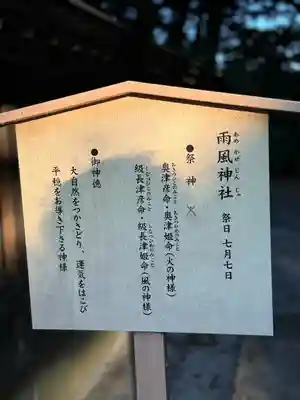 雨風神社 祭日 七月七日
あめ かぜ じん じゃ
●祭神
奥津彦命・奥津姫命(火の神様)
級長津彦命・級長津姫命(風の神様)
●御神徳
大自然をつかさどり、運気をはこび
平穏をお導き下さる神様